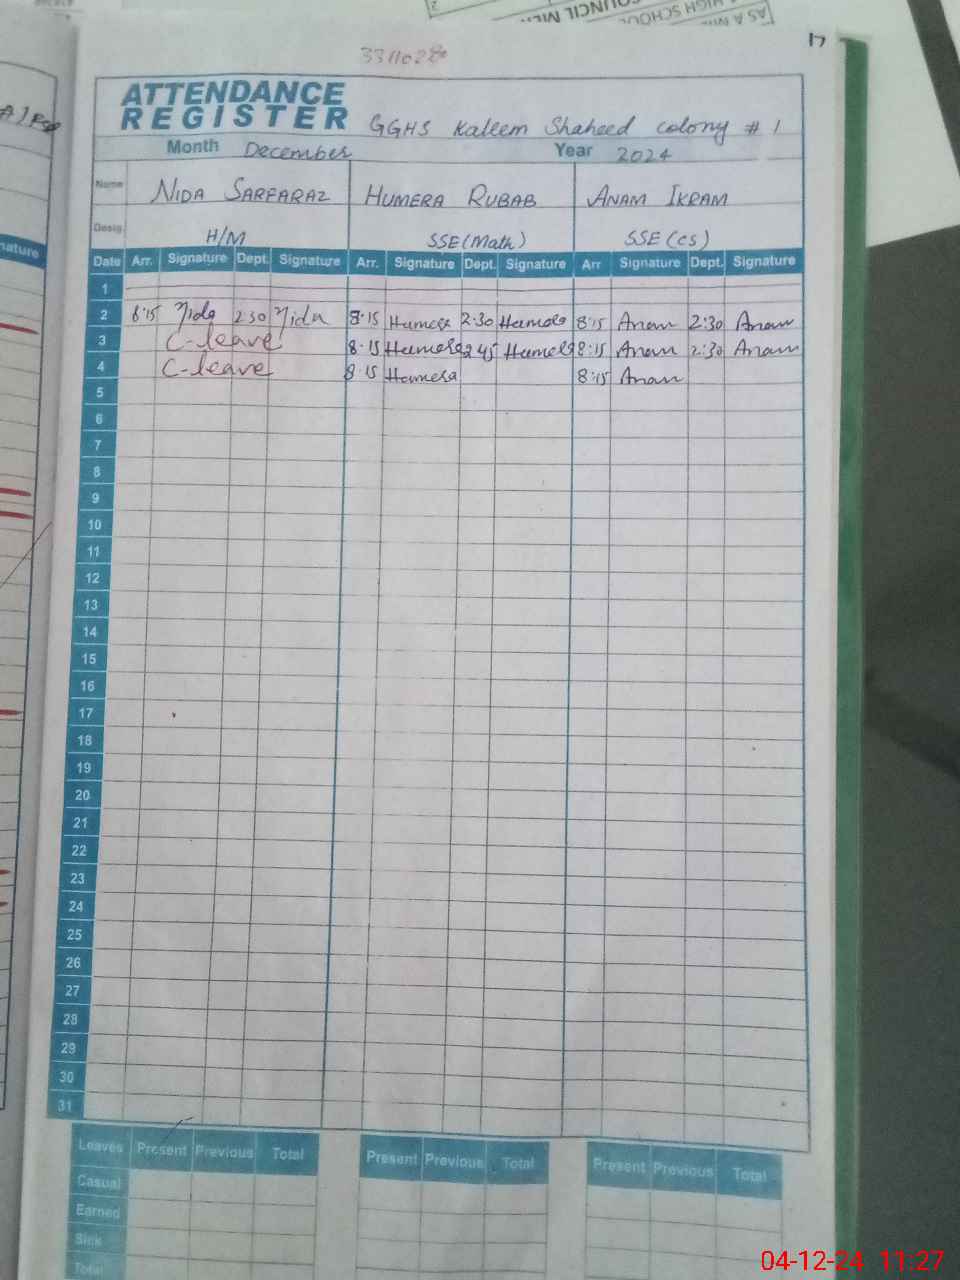 17
33110280
ATTENDANCE
REGISTER GGHS Kaleem Shaheed colony # 1
Month December Year 2024
Name NIDA SARFARAZ HUMERA RUBAB ANAM IKRAM
Desig. H/M SSE (Math) SSE (CS)
Date Arr. Signature Dept. Signature Arr. Signature Dept. Signature Arr Signature Dept. Signature
1
2 8:15 Nida 2:30 Nida 8:15 Humera 2:30 Humera 8:15 Anam 2:30 Anam
3 C-leave 8:15 Humera 2:45 Humera 8:15 Anam 2:30 Anam
4 C-leave 8:15 Humera 8:15 Anam
5
6
7
8
9
10
11
12
13
14
15
16
17
18
19
20
21
22
23
24
25
26
27
28
29
30
31
Leaves Present Previous Total Present Previous Total Present Previous Total
Casual
Earned
Sick
Total
04-12-24 11:27